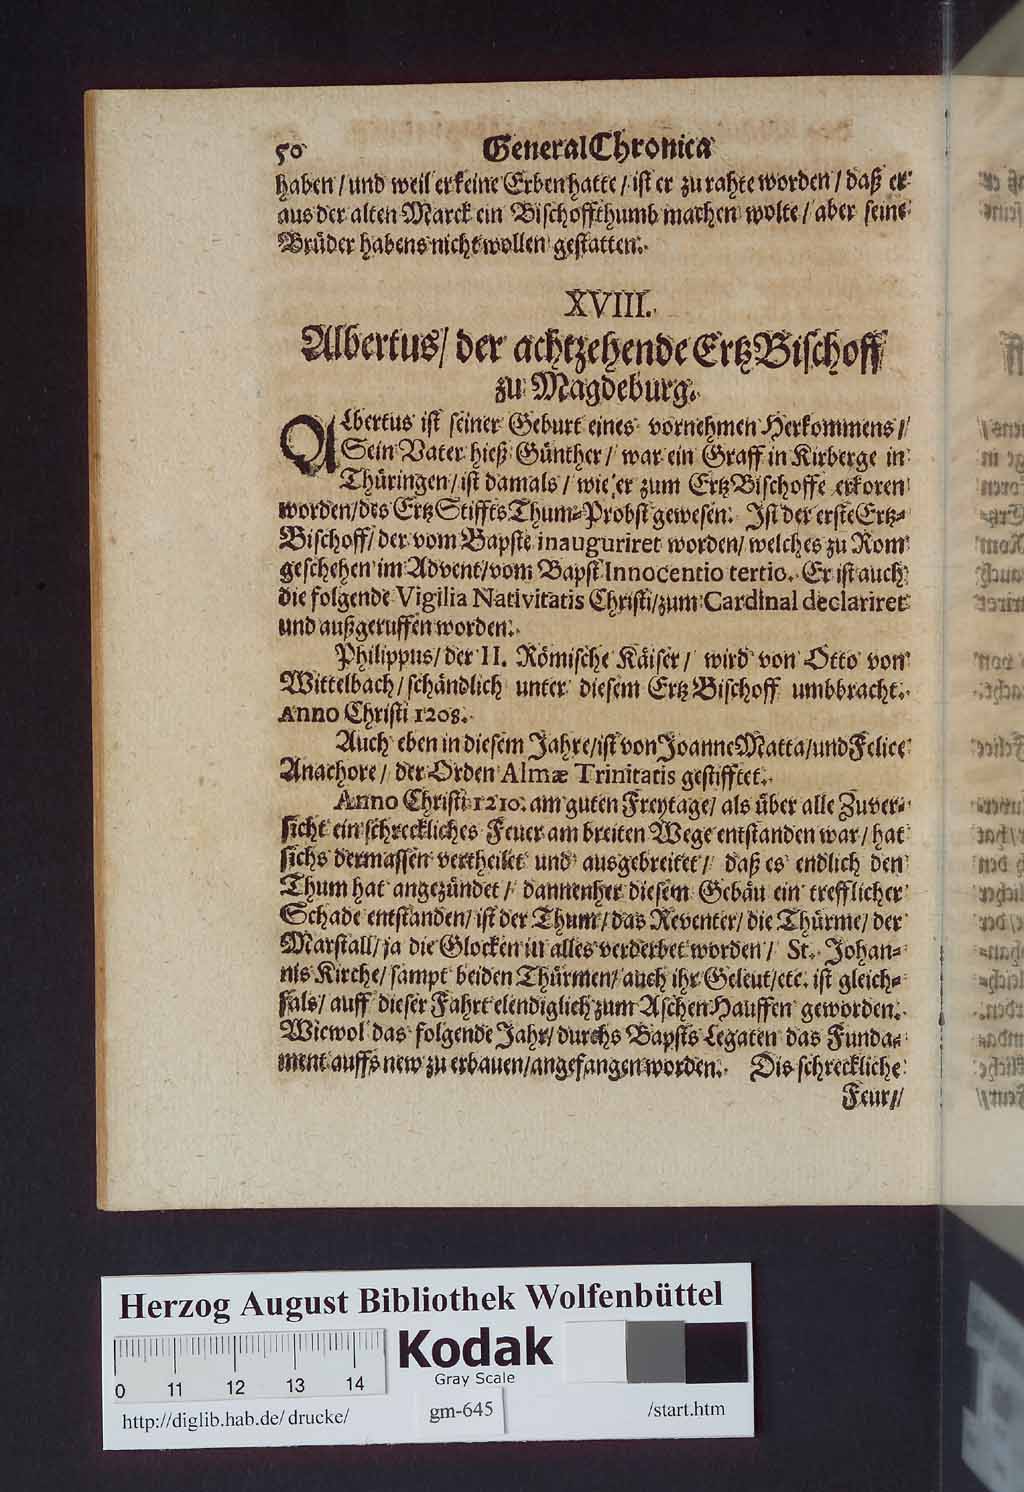 50 General Chronica
haben / und weil er keine Erben hatte / ist er zu rahte worden / daß er
aus der alten Marck ein Bischoffthumb machen wolte / aber seine
Brüder habens nicht wollen gestatten.
XVIII.
Albertus / der achtzehende Ertz Bischoff
zu Magdeburg.
Albertus ist seiner Geburt eines vornehmen Herkommens /
Sein Vater hieß Günther / war ein Graff in Kirberge in
Thüringen / ist damals / wie er zum Ertz Bischoffe erkoren
worden / des Ertz Stiffts Thum-Probst gewesen. Ist der erste Ertz-
Bischoff / der vom Bapste inauguriret worden / welches zu Rom
geschehen im Advent / vom Bapst Innocentio tertio. Er ist auch
die folgende Vigilia Nativitatis Christi / zum Cardinal declariret
und außgeruffen worden.
Philippus / der II. Römische Käiser / wird von Otto von
Wittelbach / schändlich unter diesem Ertz Bischoff umbbracht.
Anno Christi 1208.
Auch eben in diesem Jahre / ist von Joanne Matta / und Felice
Anachore / der Orden Almæ Trinitatis gestifftet.
Anno Christi 1210. am guten Freytage / als über alle Zuver-
sicht ein schreckliches Feuer am breiten Wege entstanden war / hat
sichs dermassen vertheilet und ausgebreitet / daß es endlich den
Thum hat angezündet / dannenher diesem Gebäu ein trefflicher
Schade entstanden / ist der Thum / das Reventer / die Thürme / der
Marstall / ja die Glocken in alles verderbet worden / St. Johan-
nis Kirche / sampt beiden Thürmen / auch ihr Geleut / etc. ist gleich-
fals / auff dieser Fahrt elendiglich zum Aschen Hauffen geworden.
Wiewol das folgende Jahr / durchs Bapsts Legaten das Funda-
ment auffs new zu erbauen / angefangen worden. Dis schreckliche
Feur /
Herzog August Bibliothek Wolfenbüttel
Kodak
Gray Scale
0 11 12 13 14
http://diglib.hab.de/drucke/ gm-645 /start.htm